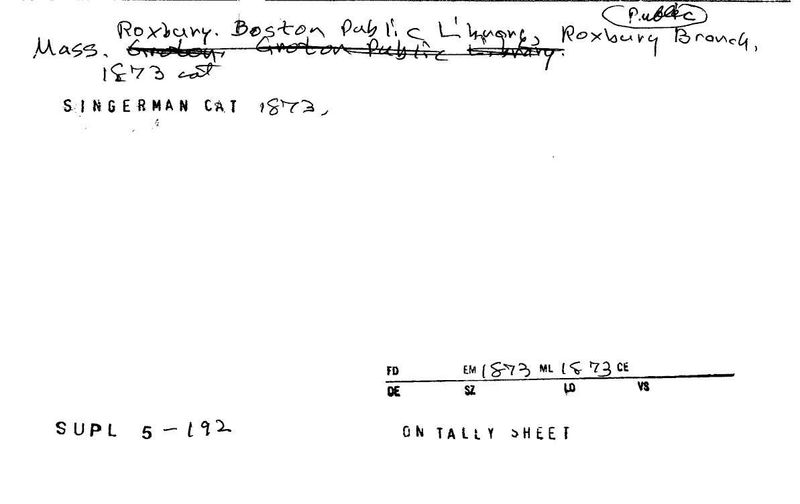 Public
Roxbury. Boston Public Library, Roxbury Branch,
Mass. Groton. Groton Public Library.
1873 cat
SINGERMAN CAT 1873,
FD EM 1873 ML 1873 CE
DE SZ LD VS
SUPL 5-192
ON TALLY SHEET